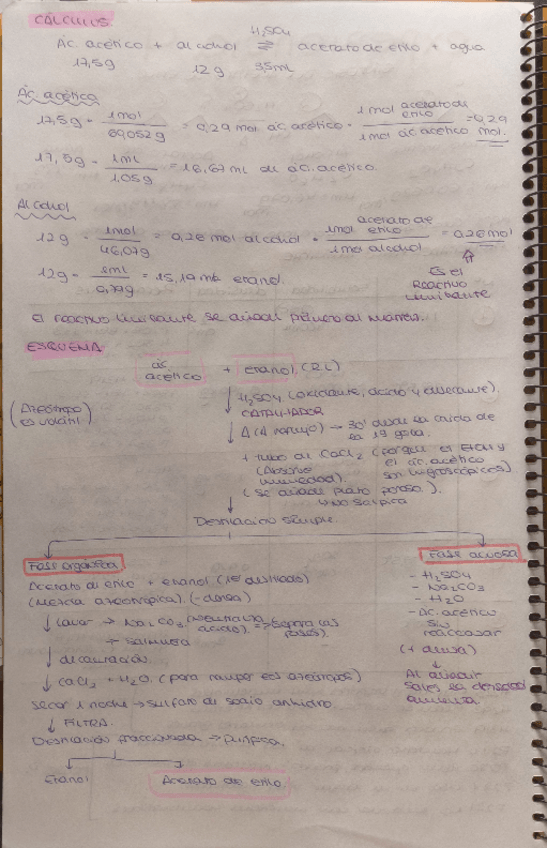 CÁLCULOS
H₂SO₄
Ác. acético + alcohol ⇌ acetato de etilo + agua
17,5g 12g 3,5mL
Ác. acético
17,5g · 1mol / 60,052g = 0,29 mol ác. acético · 1 mol acetato de etilo / 1 mol ác. acético = 0,29 mol.
17,5g · 1mL / 1,05g = 16,67 mL de ác. acético.
Alcohol
12g · 1mol / 46,07g = 0,26 mol alcohol · 1mol acetato de etilo / 1mol alcohol = 0,26 mol
12g · 1mL / 0,79g = 15,19 mL etanol.
Es el
Reactivo
limitante
El reactivo limitante se añade primero al matraz.
ESQUEMA
ác. acético + Etanol. (R.L)
H₂SO₄ (oxidante, ácido y desecante).
CATALIZADOR
(Azeótropo es volátil)
Δ (A reflujo) → 30' desde la caída de
la 1ª gota.
+ tubo de CaCl₂ (porque el EtOH y
el ác. acético
son higroscópicos)
(Absorbe
humedad).
(Se añade plato poroso).
Destilación simple.
Fase orgánica
Fase acuosa
Acetato de etilo + etanol (1er destilado)
(Mezcla azeotrópica). (- densa)
Lavar → Na₂CO₃ (neutraliza ácido). ⇒ (separa las fases).
+ Salmuera
decantación
CaCl₂ + H₂O. (para romper el azeótropo)
Secar 1 noche → sulfato de sodio anhidro.
FILTRA.
Destilación fraccionada → purifica.
Etanol
Acetato de etilo
- H₂SO₄
- Na₂CO₃
- H₂O
- Ác. acético
sin
reaccionar
(+ densa)
Al añadir
sales la densidad
aumenta